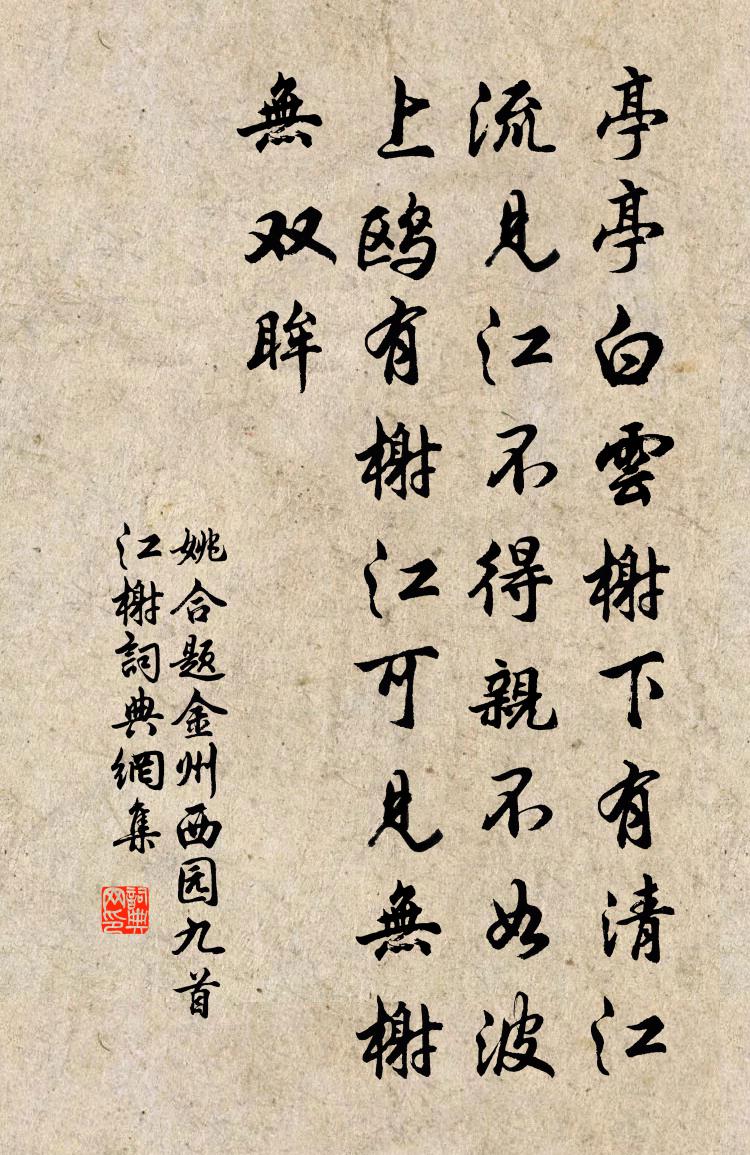 亭亭白雲榭下有清江
流見江不得親不如波
上鸥有榭江可見無榭
無双眸
姚合题金州西园九首
江榭詞典網集
詞典网印